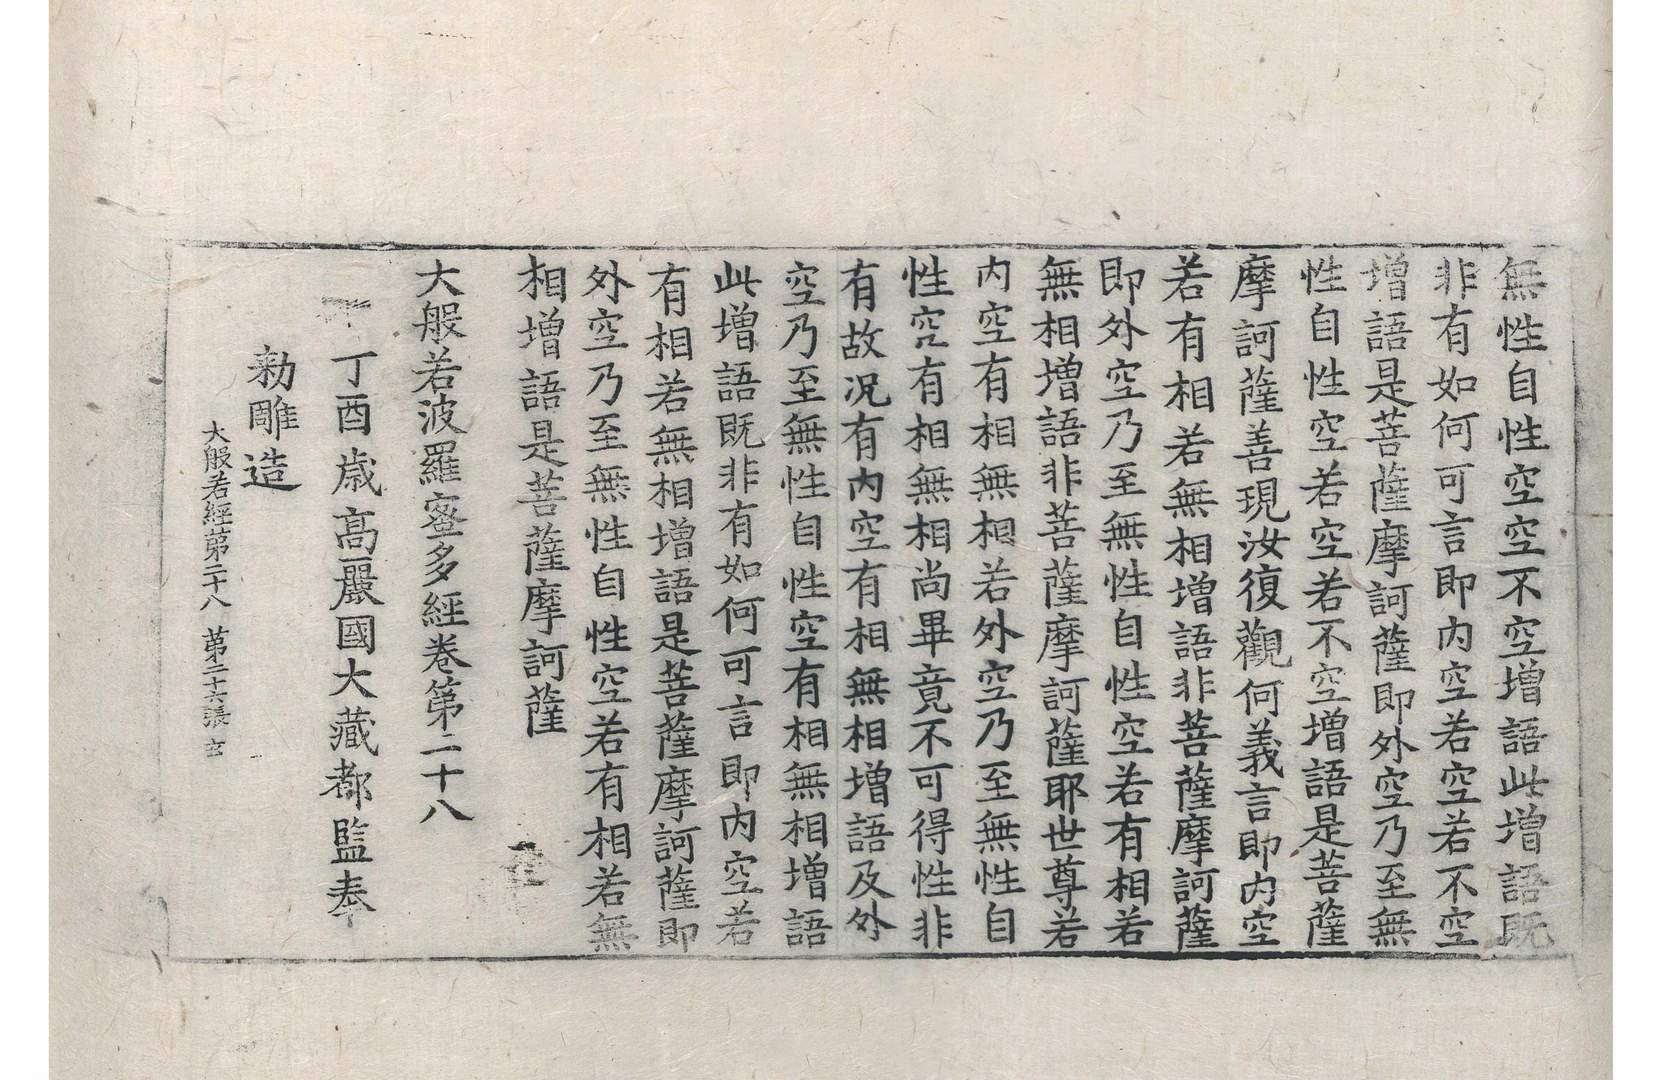 無性自性空空不空增語此增語既
非有如何可言即内空若空若不空
增語是菩薩摩訶薩即外空乃至無
性自性空若空若不空增語是菩薩
摩訶薩善現汝復觀何義言即内空
若有相若無相增語非菩薩摩訶薩
即外空乃至無性自性空若有相若
無相增語非菩薩摩訶薩耶世尊若
内空有相無相若外空乃至無性自
性空有相無相尚畢竟不可得性非
有故况有内空有相無相增語及外
空乃至無性自性空有相無相增語
此增語既非有如何可言即内空若
有相若無相增語是菩薩摩訶薩即
外空乃至無性自性空若有相若無
相增語是菩薩摩訶薩
大般若波羅蜜多經卷第二十八
丁酉歲高麗國大藏都監奉
勑雕造
大般若經第二十八 第二十六張 玄